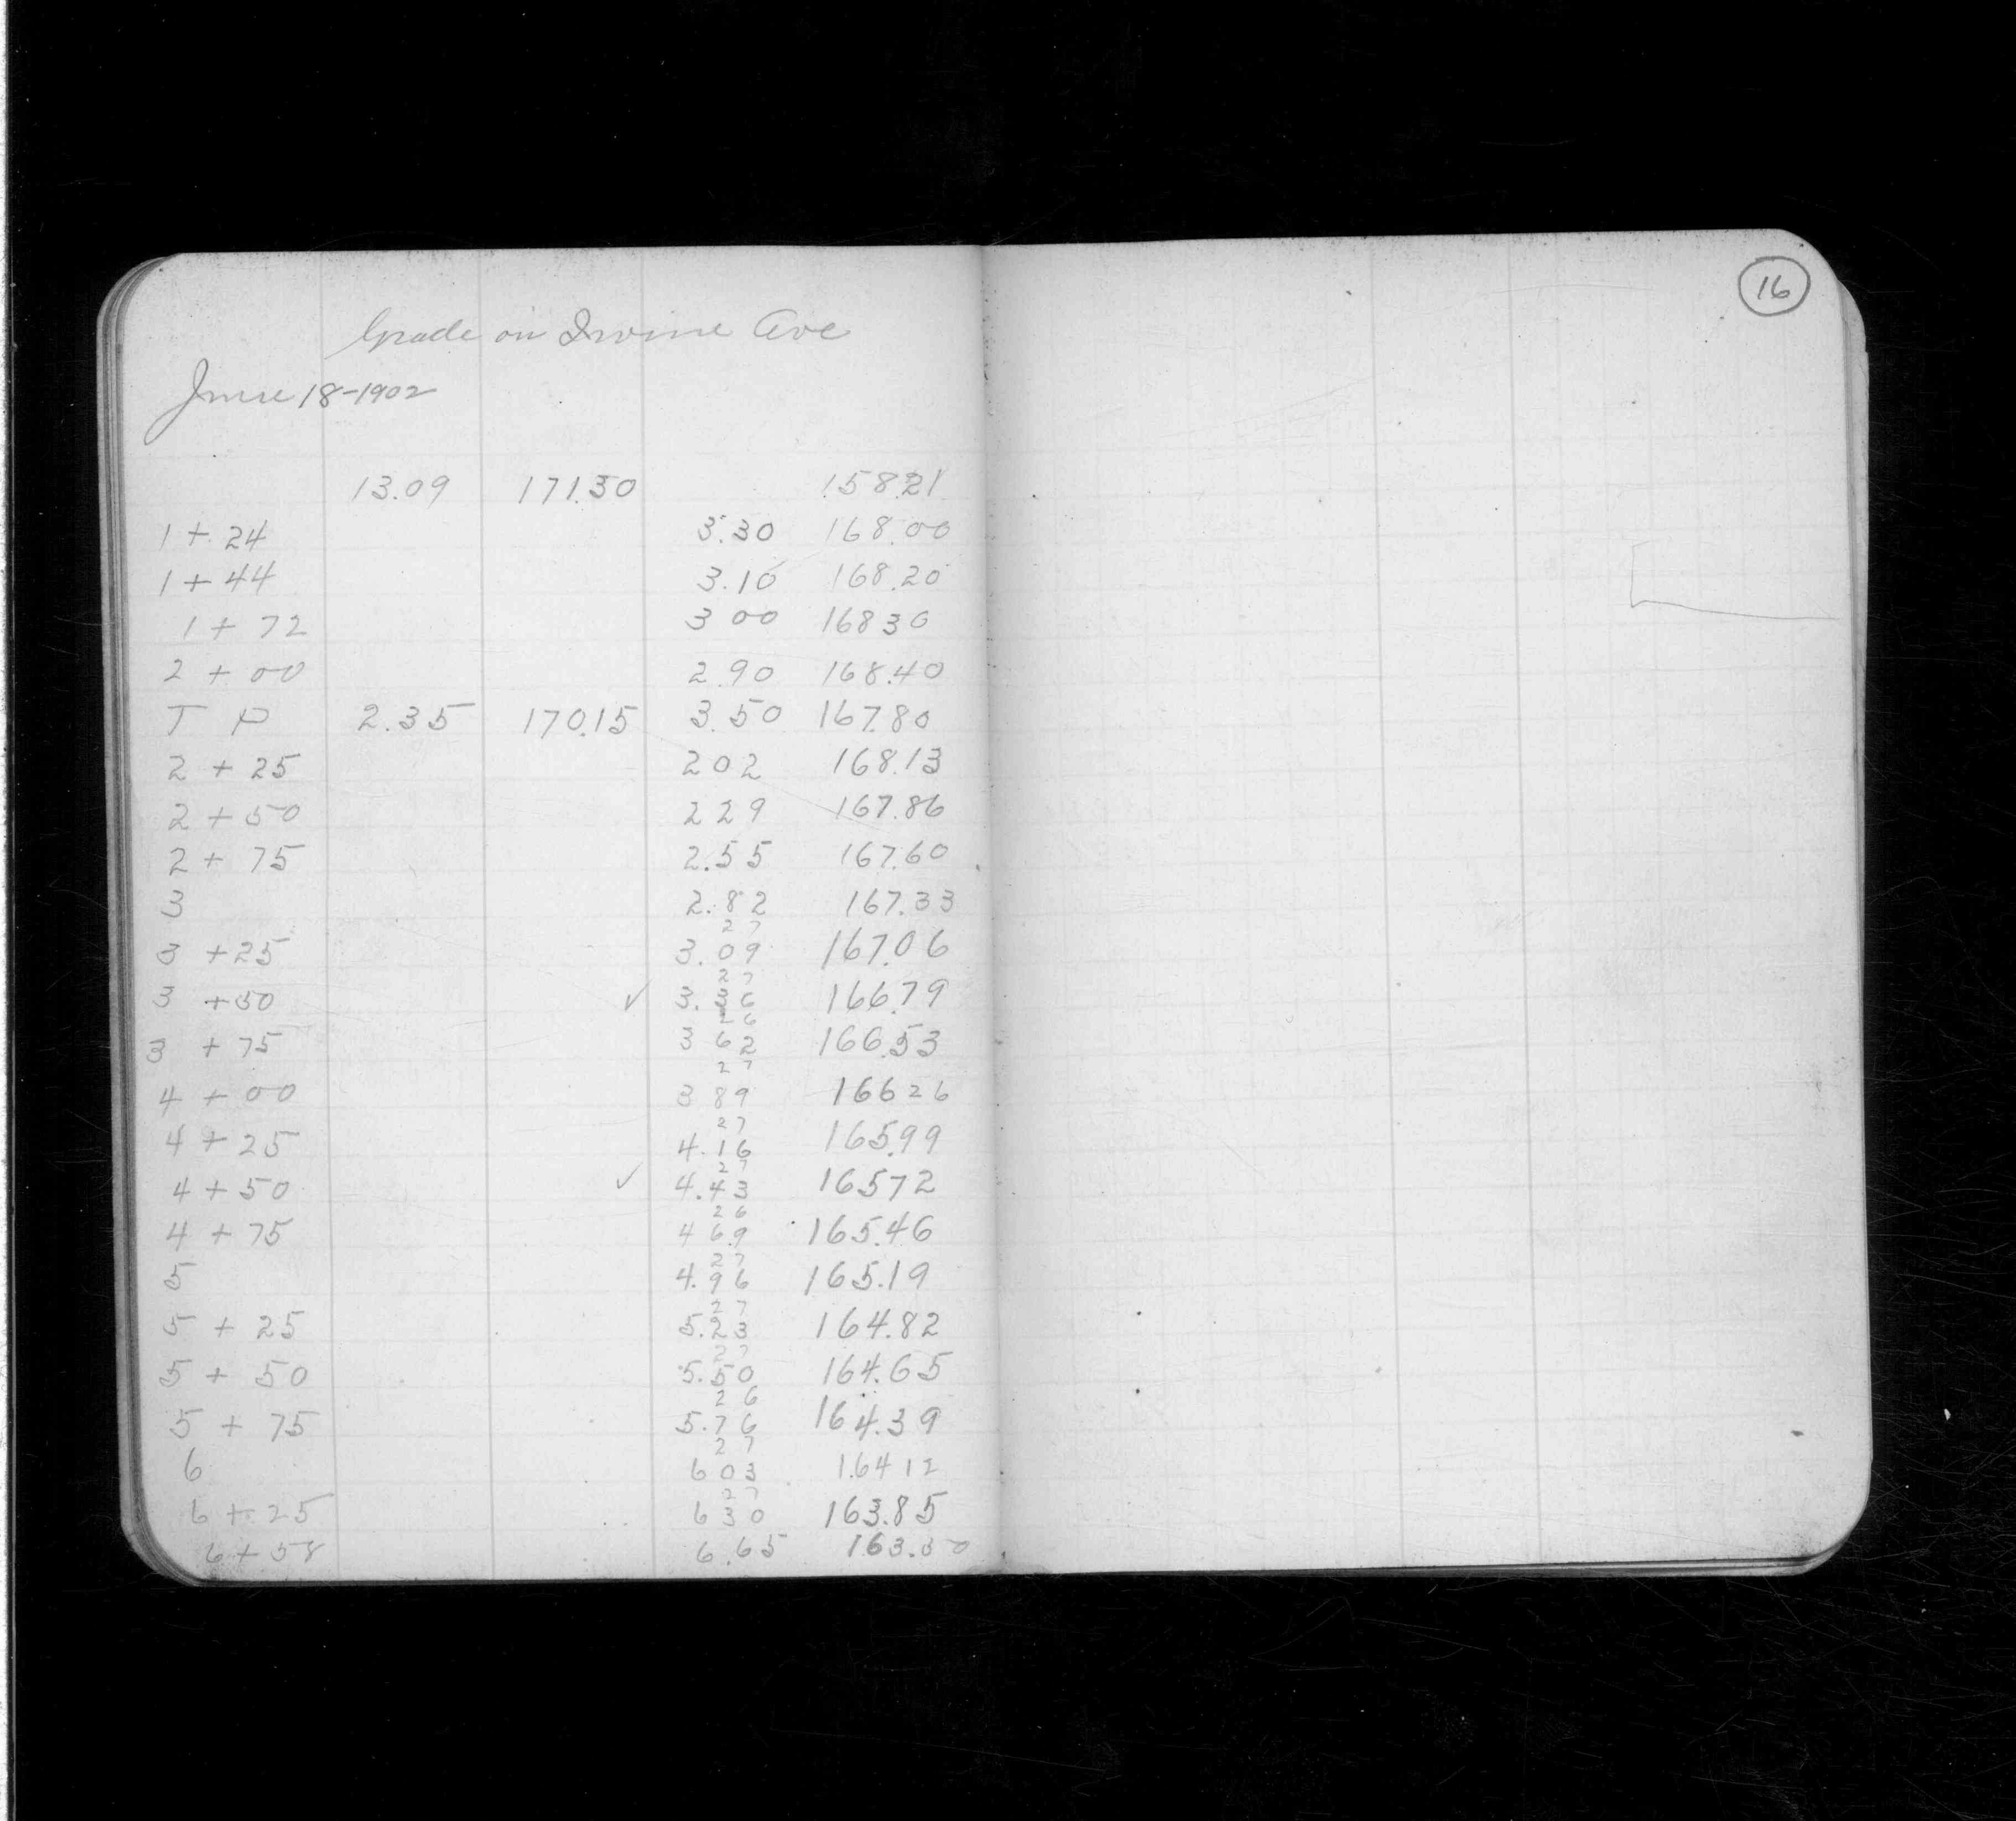 16
Grade on Irvine Ave
June 18-1902
13.09 171.30 158.21
1 + 24 3.30 168.00
1 + 44 3.10 168.20
1 + 72 3 00 168 30
2 + 00 2.90 168.40
T P 2.35 170.15 3.50 167.80
2 + 25 2 02 168.13
2 + 50 2 29 167.86
2 + 75 2.55 167.60
3 2.82 167.33
27
3 +25 3.09 167.06
27
3 +50 ✓ 3.36 166.79
26
3 +75 3 62 166.53
27
4 + 00 3 89 166 26
27
4 + 25 4.16 165.99
27
4 + 50 ✓ 4.43 165 72
26
4 + 75 4 69 165.46
27
5 4.96 165.19
27
5 + 25 5.23 164.82
27
5 + 50 5.50 164.65
26
5 + 75 5.76 164.39
27
6 6 03 164 12
27
6 + 25 6 30 163.85
6 + 58 6.65 163.50